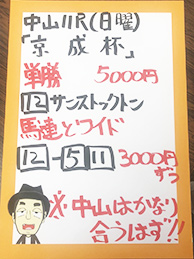 中山11R(日曜)
「京成杯」
単勝 5000円
12サンストックトン
馬連とワイド
12-5 11 3000円
ずつ
※中山はかなり
合うはず!!